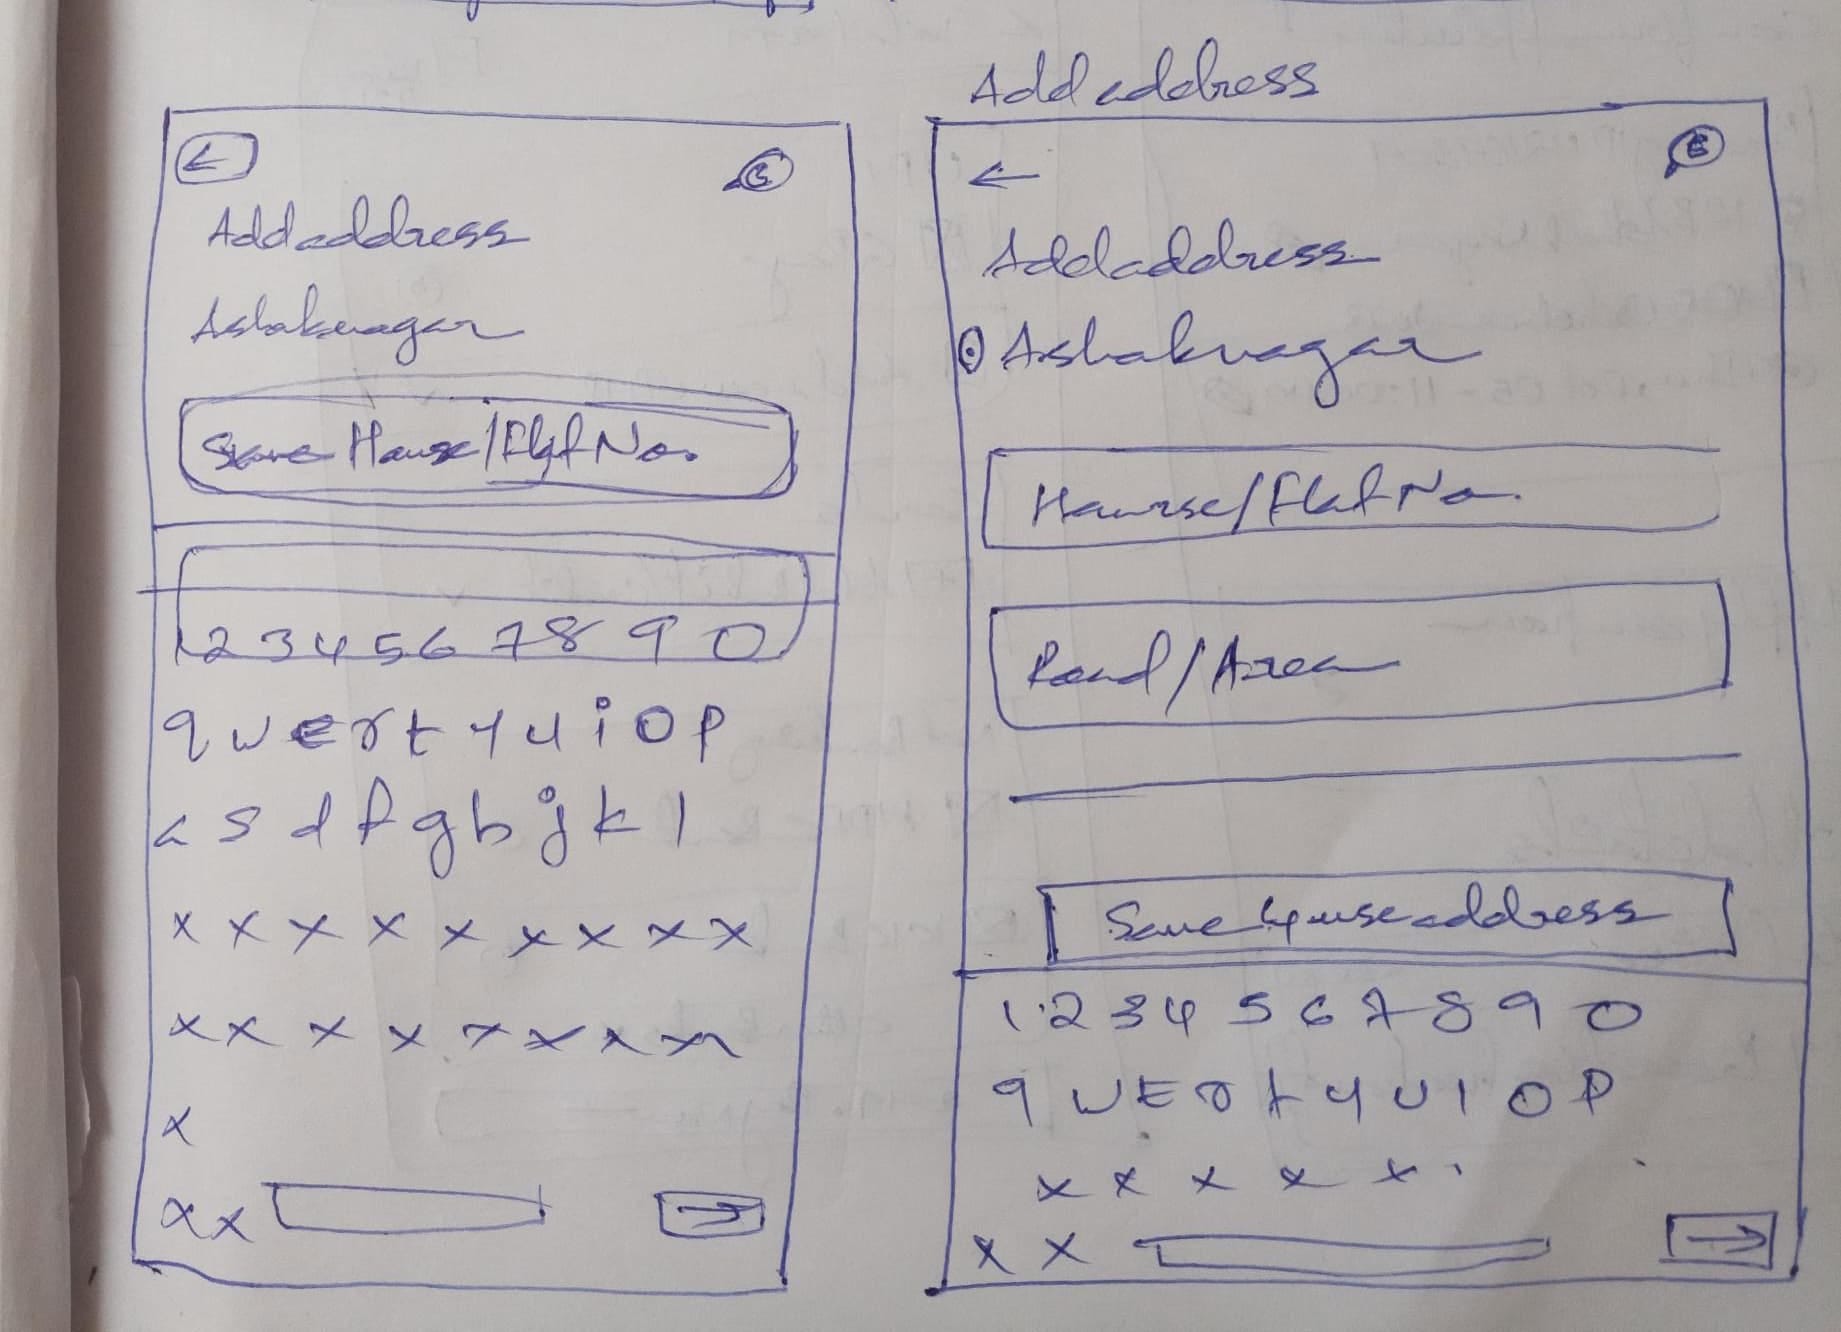 Add address
Add address
Ashoknagar
Save House/Flat No.
1 2 3 4 5 6 7 8 9 0
q w e r t y u i o p
a s d f g h j k l
x x x x x x x x x
x x x x x x x x
x
x x
Add address
Ashoknagar
House/Flat No.
Road/Area
Save house address
1 2 3 4 5 6 7 8 9 0
q w E r t y u i o p
x x x x x
x x